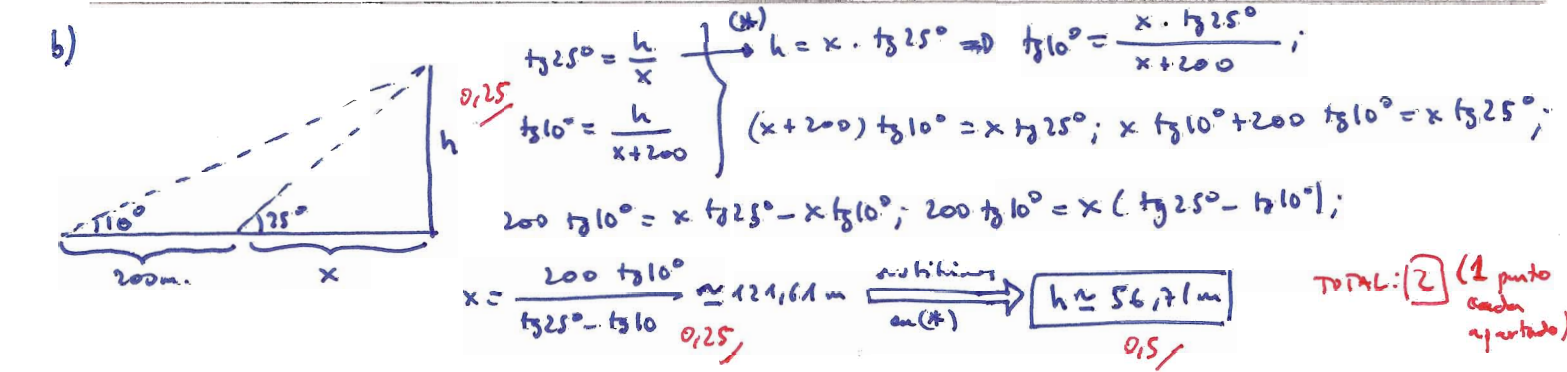 b)
tg25° = h/x (*) → h = x · tg25° ⇒ tg10° = x · tg25° / x+200 ;
0,25
tg10° = h / x+200
(x+200) tg10° = x tg25°; x tg10° + 200 tg10° = x tg25°;
h
10° 25°
200 tg10° = x tg25° - x tg10°; 200 tg10° = x (tg25° - tg10°);
200m. x
x = 200 tg10° / tg25° - tg10 ≃ 121,61 m sustituimos en (*) h ≃ 56,71 m
0,25
0,5
TOTAL: 2 (1 punto cada apartado)